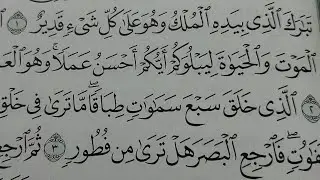 تَبَٰرَكَ ٱلَّذِي بِيَدِهِ ٱلۡمُلۡكُ وَهُوَ عَلَىٰ كُلِّ شَيۡءٖ قَدِيرٌ ١
ٱلۡمَوۡتَ وَٱلۡحَيَوٰةَ لِيَبۡلُوَكُمۡ أَيُّكُمۡ أَحۡسَنُ عَمَلٗاۚ وَهُوَ ٱلۡعَ
ٱلَّذِي خَلَقَ سَبۡعَ سَمَٰوَٰتٖ طِبَاقٗاۖ مَّا تَرَىٰ فِي خَلۡقِ
تَفَٰوُتٖۖ فَٱرۡجِعِ ٱلۡبَصَرَ هَلۡ تَرَىٰ مِن فُطُورٖ ٣ ثُمَّ ٱرۡجِعِ